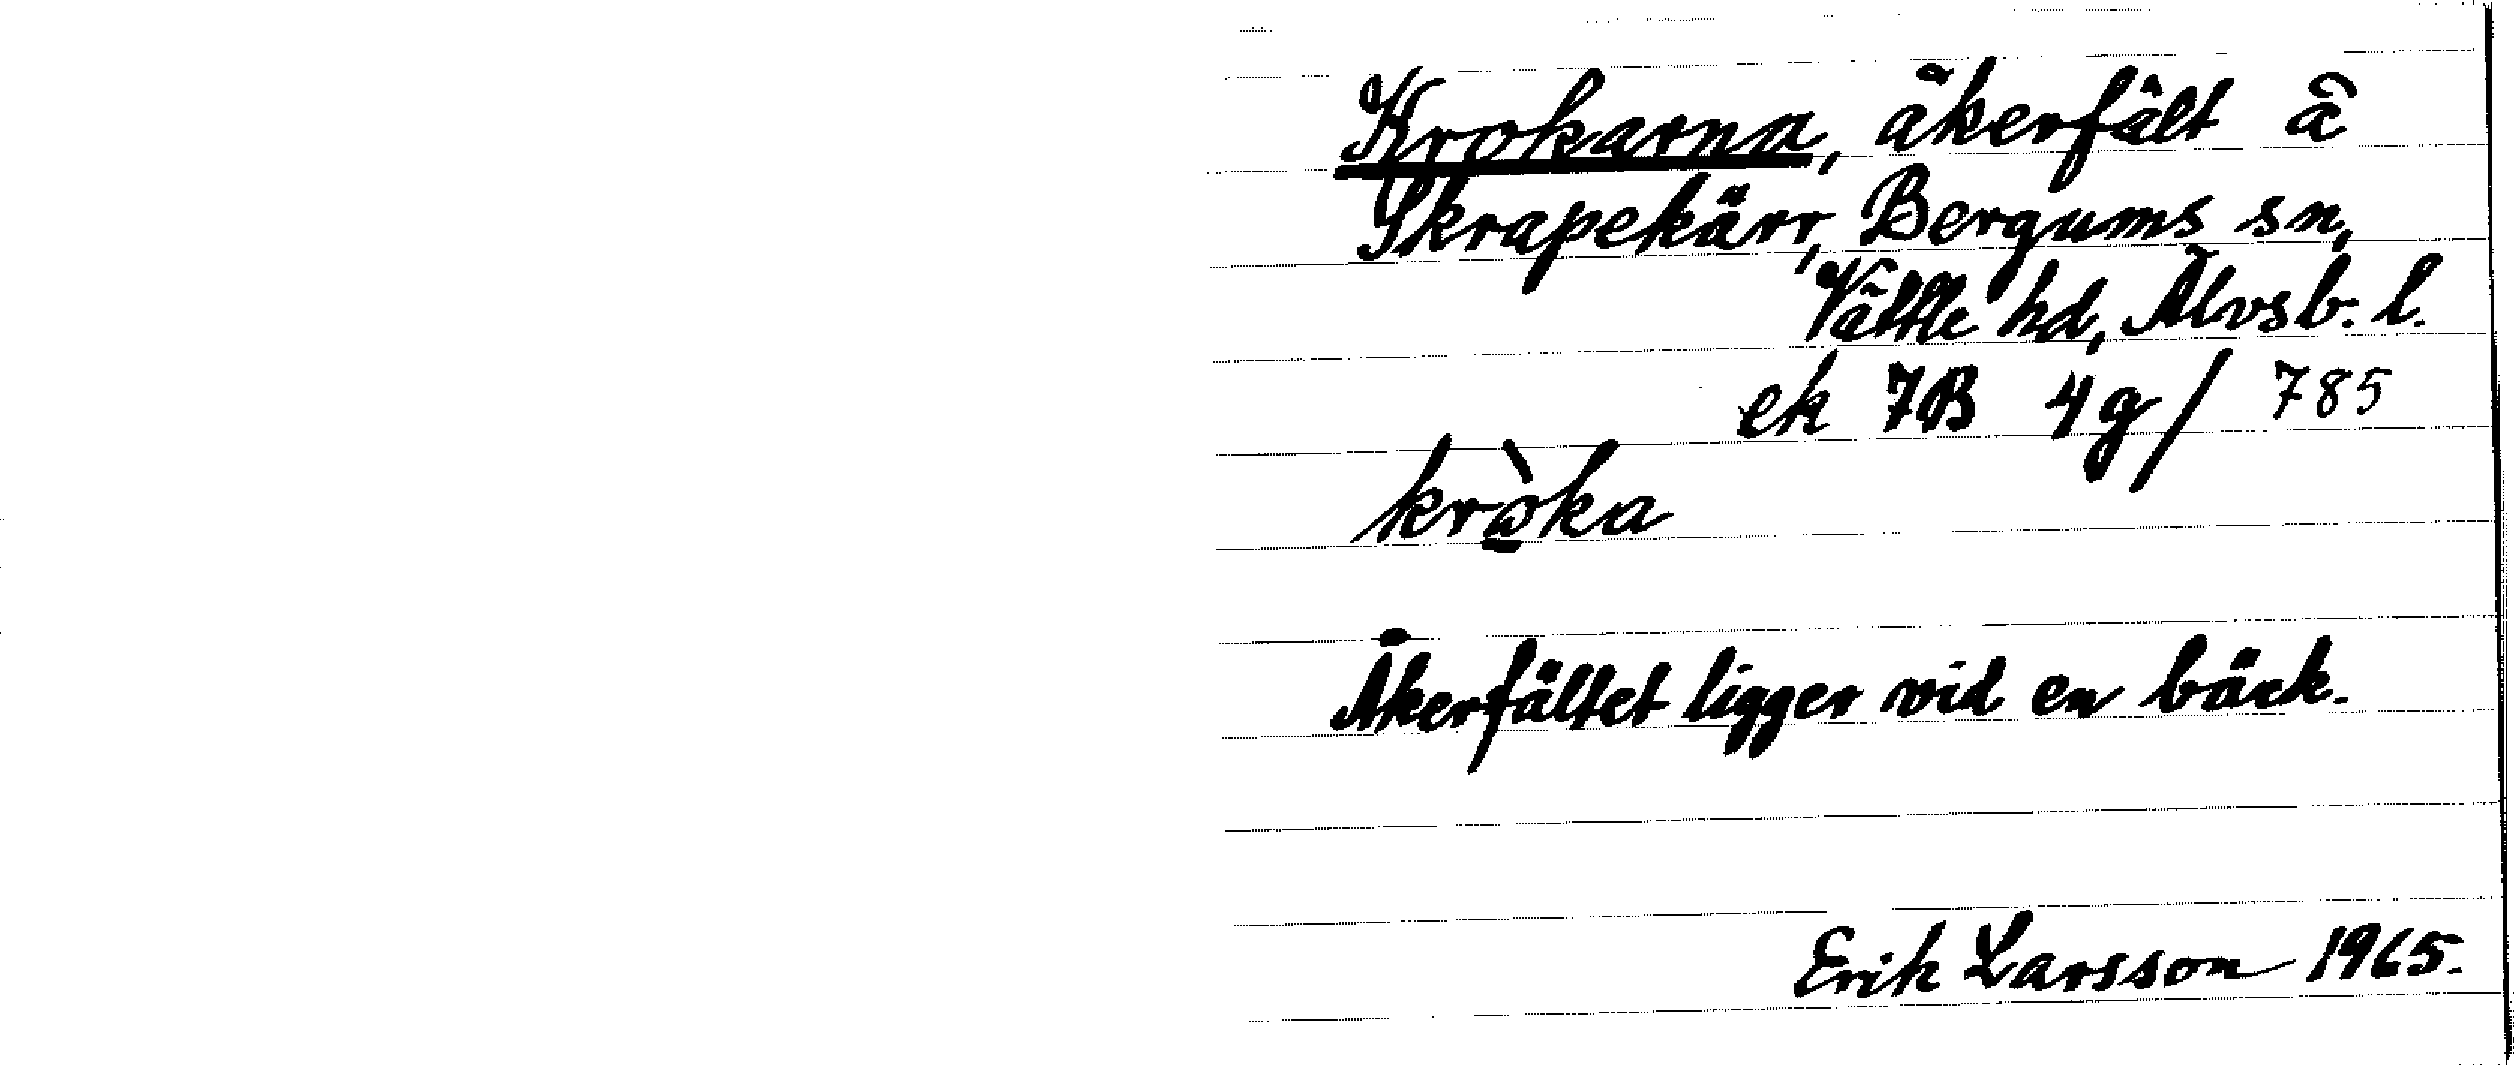 Krokarna, åkerfält å
Skrapekärr, Bergums sn,
Vättle hd, Älvsb. l.
ek 7B 4g/ 785
kròka
Åkerfältet ligger vid en bäck.
Erik Larsson 1965.